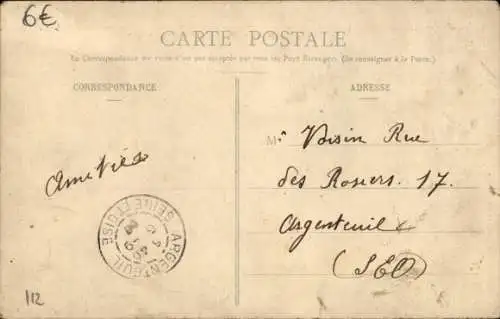 6€
CARTE POSTALE
La Correspondance au recto n'est pas acceptée par tous les Pays Etrangers. (Se renseigner à la Poste.)
CORRESPONDANCE
ADRESSE
Amitiés
M^r Voisin Rue
des Rosiers. 17.
Argenteuil
(S&O)
ARGENTEUIL
SEINE ET OISE
112